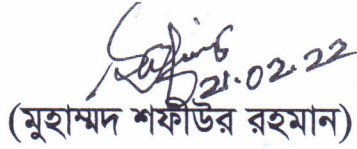 21.02.22
(মুহাম্মদ শফীউর রহমান)